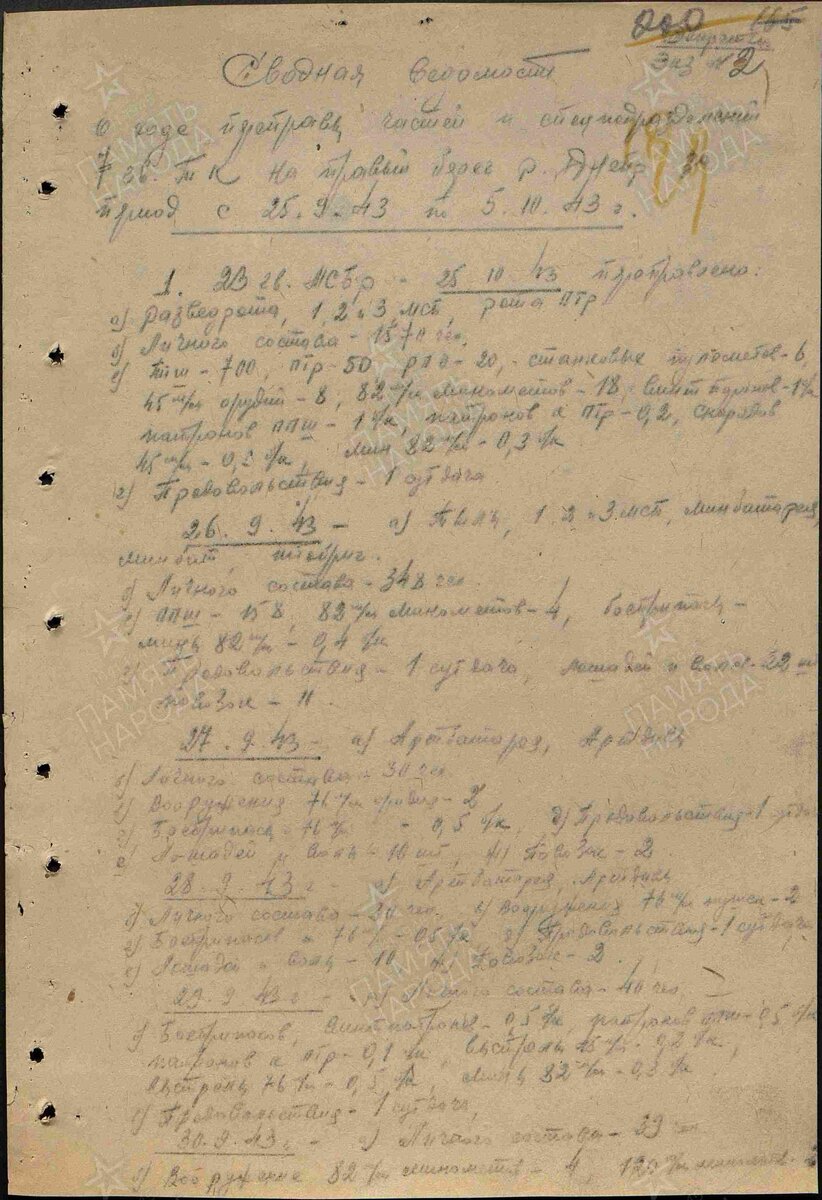 Секретно
Экз № 2
Сводная ведомость
о ходе переправы частей и спецподразделений
7 гв. ТК на правый берег р. Днепр за
период с 25.9.43 по 5.10.43 г.
1. 23 гв. МСбр - 25 10 43 переправлено:
а) Разведрота, 1, 2 и 3 мсб, рота ПТР
б) Личного состава - 1570 чел.
в) ППШ - 700, ПТР - 50, РПД - 20, станковых пулеметов - 6,
45 м/м орудий - 8, 82 м/м минометов - 18, винт патронов - 1 б/к
патронов ППШ - 1 б/к, патронов к ПТР - 0,2, снарядов
45 м/м - 0,2 б/к, мин 82 м/м - 0,3 б/к
г) Продовольствия - 1 сутдача
26.9.43 - а) 1 2 и 3 мсб, минбатарея,
минбат,
б) Личного состава - 348 чел.
в) ППШ - 158, 82 м/м минометов - 4, боеприпасы -
мины 82 м/м - 0,4 б/к
г) Продовольствия - 1 сутдача, лошадей и волов - 22 шт
повозок - 11.
27.9.43 - а) Артбатарея, Артдивиз
б) Личного состава - 30 чел.
в) Вооружения 76 м/м орудия - 2
г) Боеприпасы - 76 м/м - 0,5 б/к, д) Продовольствия - 1 сутдача
е) Лошадей и волы - 10 шт, ж) Повозок - 2
28.9.43 г - а) Артбатарея, Артдивиз
б) Личного состава - 30 чел. в) Вооружения 76 м/м пушки - 2
г) Боеприпасов 76 м/м - 0,5 б/к д) Продовольствия - 1 сутдача
е) Лошадей и волы - 10 ж) Повозок - 2.
29.9.43 г - а) Личного состава - 40 чел
б) Боеприпасов, винтпатроны - 0,5 б/к, патронов ППШ - 0,5 б/к
патронов к ПТР - 0,1 б/к, выстрелы 45 м/м - 0,2 б/к,
выстрелы 76 м/м - 0,5 б/к, мины 82 м/м - 0,3 б/к.
в) Продовольствия - 1 сутдача,
30.9.43 г - а) Личного состава - 39 чел
б) Вооружение 82 м/м минометов - 4, 120 м/м
ПАМЯТЬ НАРОДА